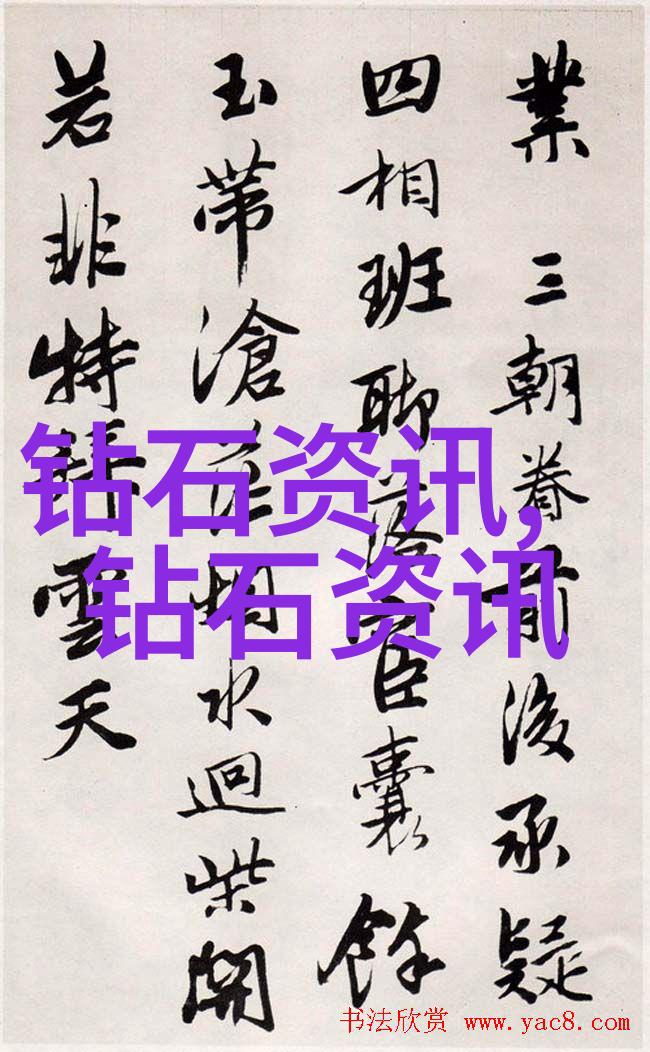 業 三朝眷前後承疑
四相班聊落臣囊餘
玉帶滄茫烟水迴柴開
若非特雲天
钻石资讯,
钻石资讯
书法欣赏 www.yac8.com